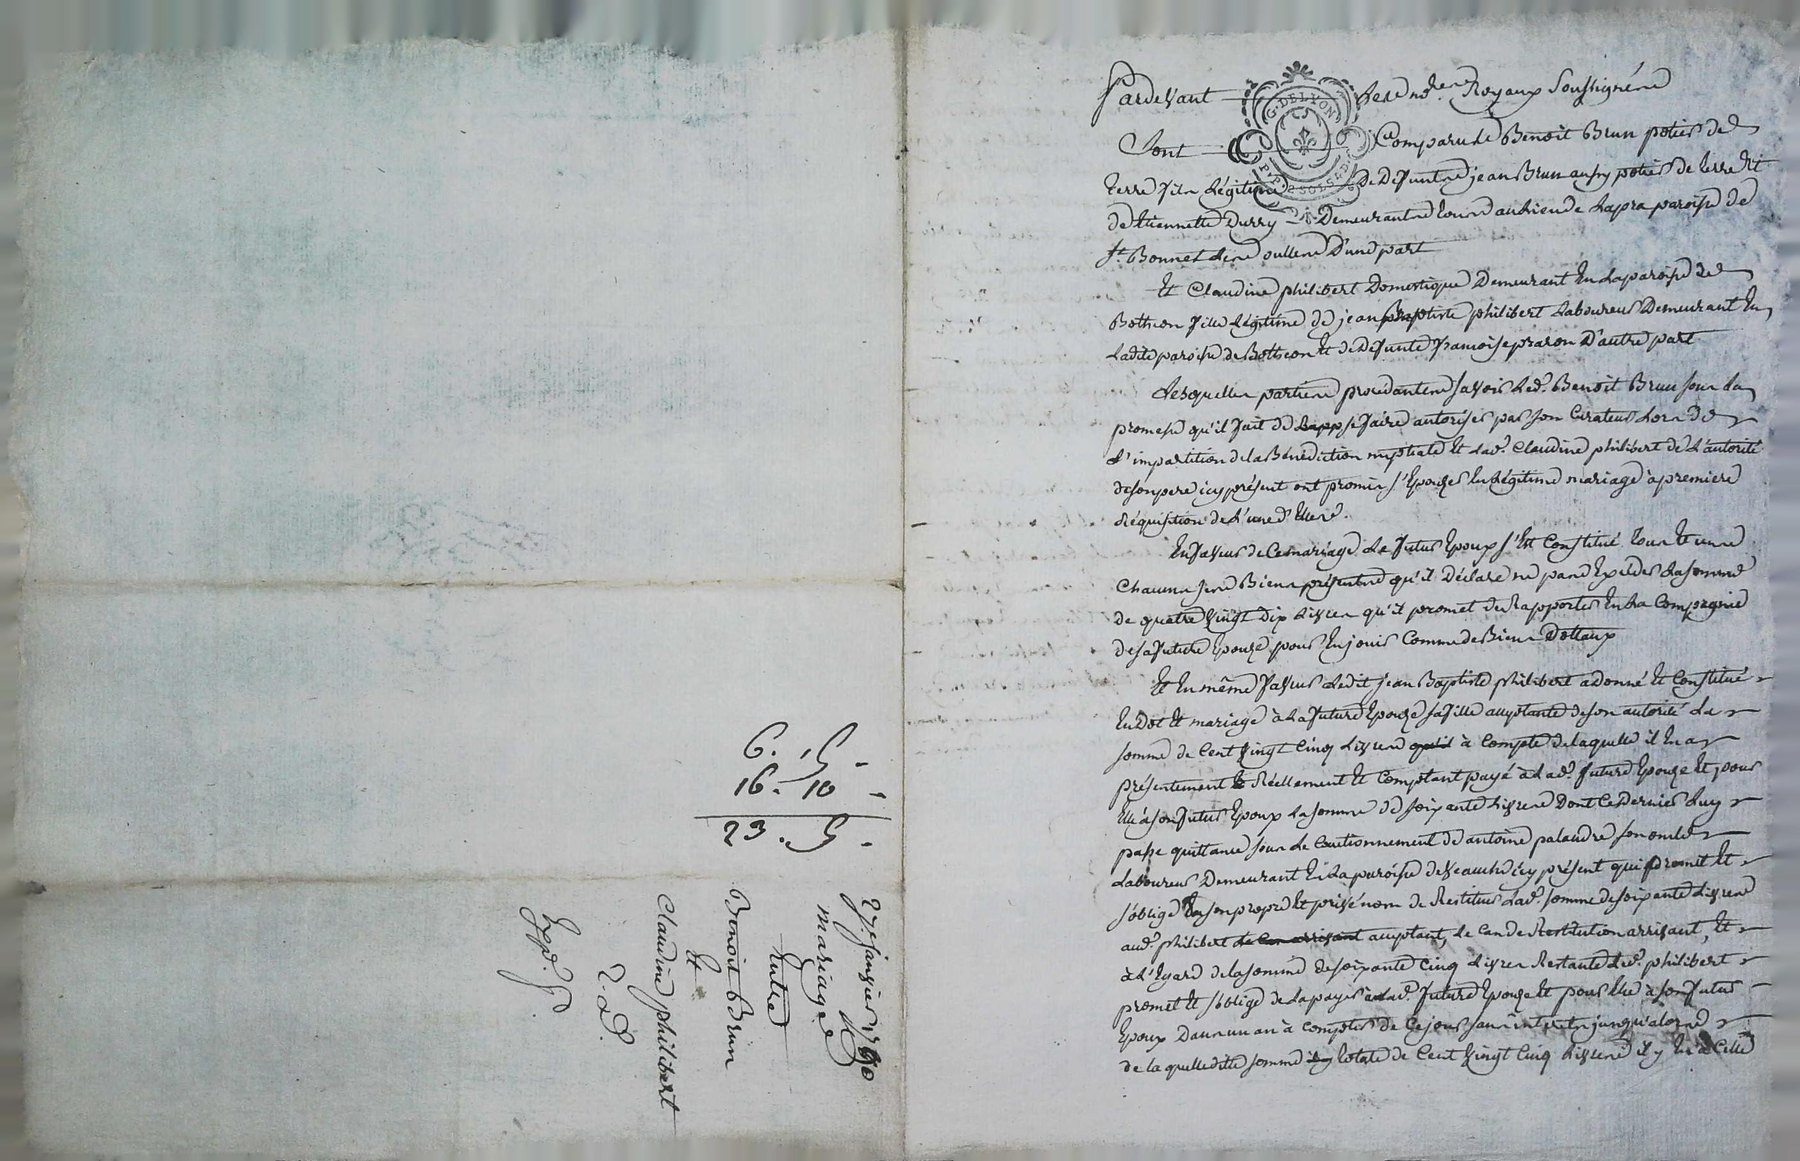 6. 15 -
16. 10 -
23. 5 -
27 janvier 1780
mariage
Entre
Benoit Brun
Et
Claudine philibert
Expd.
G. DE LYON
Pardevant Les no.res Royaux Soussignés
Sont Comparus Benoit Brun potier de
terre fils Légitime de Defunts jean Brun aussy potier de terre Et
de Etiennette Durry Demeurant au Lieu de Lapra paroisse de
St. Bonnet Les oulles D'une part
Et Claudine philibert Domestique Demeurant En La paroisse de
Botheon fille Légitime de jean Baptiste philibert Laboureur Demeurant En
Ladite paroisse de Botheon Et de Defunte françoise praron D'autre part
Lesquelles parties procédantes savoir Led. Benoit Brun sous La
promesse qu'il fait de se faire autoriser par son Curateur Lors de
L'impartition de la Bénédiction nuptiale Et Lad. Claudine philibert de L'autorité
de son pere icy présent ont promis s'Epouser En Légitime mariage à premiere
Réquisition de L'une d'Elles.
En faveur de Ce mariage Le futur Epoux s'Est Constitué tous Et uns
Chacuns ses Biens présents qu'il Déclare ne pas Exceder La somme
de quatre vingt Dix Livres qu'il promet de Rapporter En La Compagnie
de sa future Epouze pour En jouir Comme de Biens Dottaux
Et En même faveur Ledit jean Baptiste philibert a donné Et Constitué
En Dot Et mariage à La future Epouze sa fille acceptante de son autorité La
somme de Cent vingt Cinq Livres à Compte de laquelle il En a
présentement Et Réellement Et Comptant payé à Lad. future Epouze Et pour
Elle à son futur Epoux La somme de soixante Livres Dont Ce dernier Luy
passe quittance sous Le Cautionnement de antoine palandre son oncle
Laboureur Demeurant En La paroisse de Veauche icy présent qui promet Et
s'oblige En son propre Et privé nom de Restituer Lad. somme de soixante Livres
aud. philibert acceptant, Le Cas de Restitution arrivant, Et
à L'Egard de La somme de soixante Cinq Livres Restante Led. philibert
promet Et s'oblige de La payer à Lad. future Epouze Et pour Elle à son futur
Epoux Dans un an à Compter de Ce jour sans intérêts jusqu'alors
de laquelle ditte somme totale de Cent vingt Cinq Livres il y En a Celle